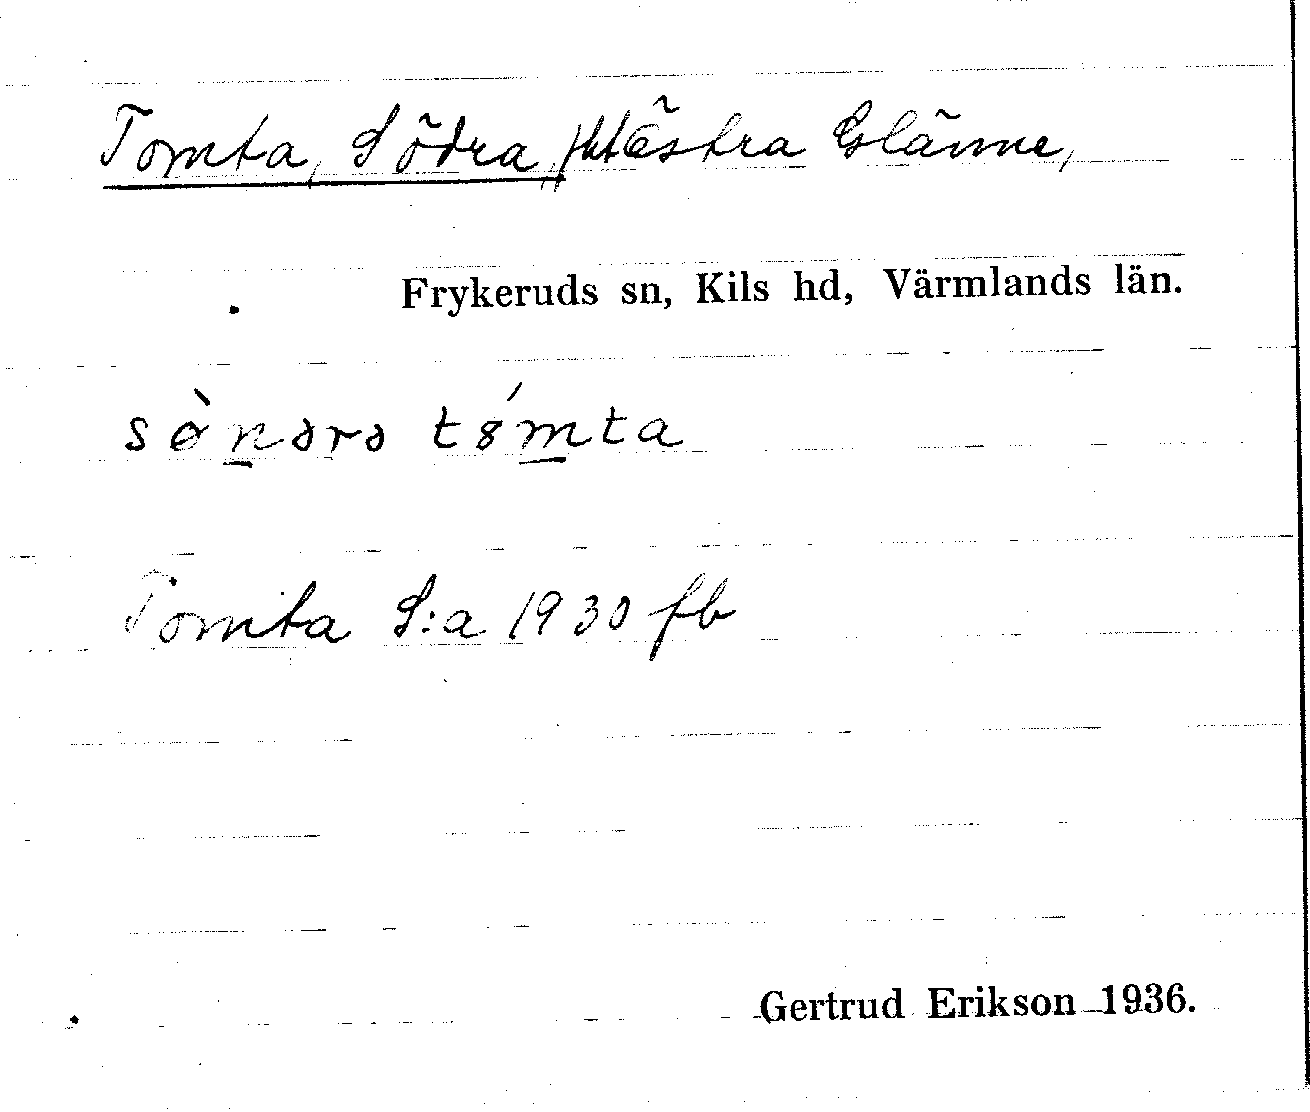 Tomta, Södra, Västra Glänne,
Frykeruds sn, Kils hd, Värmlands län.
sø̀nərə tȣ́mta
Tomta S:a 1930 fb
Gertrud Erikson 1936.